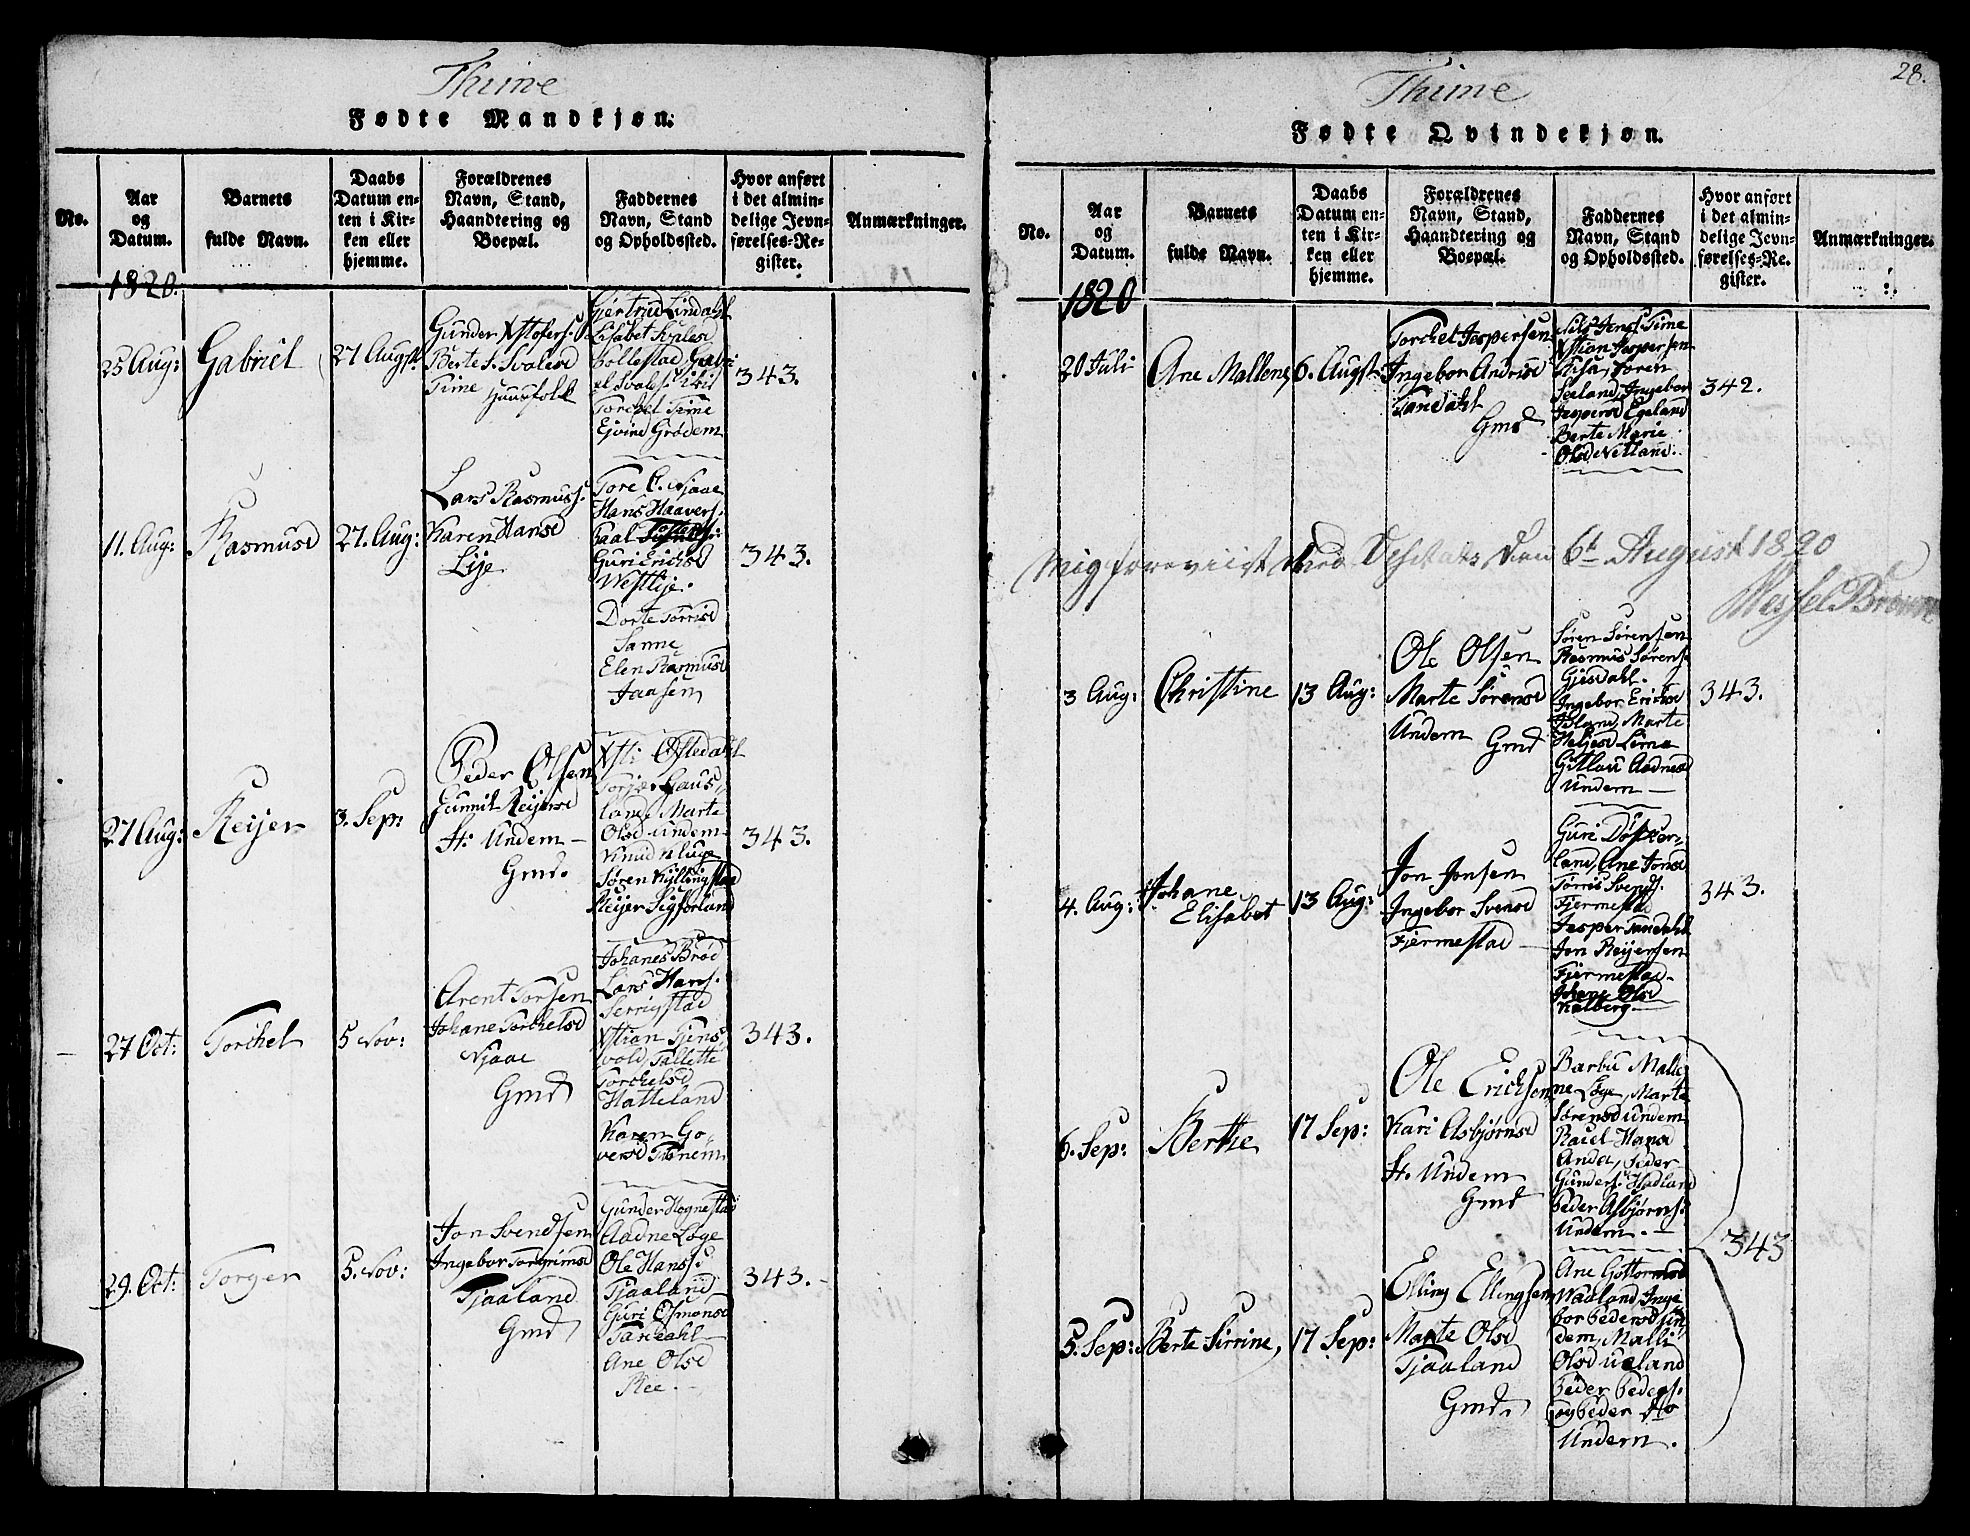 Thime
Fødte Mandkjøn.
No.
Aar og Datum.
Barnets fulde Navn.
Daabs Datum enten i Kirken eller hjemme.
Forældrenes Navn, Stand, Haandtering og Boepæl.
Faddernes Navn, Stand og Opholdssted.
Hvor anført i det almindelige Jevnførelses-Register.
Anmærkninger.
1820.
25 Aug:
Gabriel
27 Augst.
Gunder Xstofers.
Berte S. Svalesd
Time Huusfolk
Gjertrud Lindahl
Lisabet
Kollestad Gabri
el Svales.
Torchel Time
Ejvind Grødem
343.
11. Aug:
Rasmus
27. Aug:
Lars Rasmuss.
Karen Hansd
Lije
Tore O. Njaae
Hans Haavers.
Paal
Guri Erichsd
Westlije.
Dorte Torrisd
Sanne
Elen Rasmusd
Jaasen
343.
27 Aug:
Reijer
3. Sep:
Peder Olsen
Gunnil Reijersd
St: Undem
Gmd.
Xsti: Ofstedahl
Torjer Haus
land, Marte
Olsd Undem
Knud Kluge
Søren Kyllingstad
Reijer Sigforland
343.
27 Oct:
Torchel
5 Nov:
Arent Torsen
Johane Torchelsd
Njaae
Gmd
Johanes Brød
Lars Hans.
Serrigstad
Xstian Tjens
vold, Tallette
Torchelsd
Hatteland
Karen Go
versd Tronem
343.
29. Oct:
Torger
5. Nov:
Jon Svendsen
Ingebor Torgrimsd
Tjaaland
Gmd
Gunder Hognestad
Aadne Løge
Ole Hanss:
Tjaaland
Guri Osmonsd
Tarldahl
Ane Olsd
Ree.
343.
Thime
28.
Fødte Qvindekjøn.
No.
Aar og Datum.
Barnets fulde Navn.
Daabs Datum enten i Kirken eller hjemme.
Forældrenes Navn, Stand, Haandtering og Boepæl.
Faddernes Navn, Stand og Opholdssted.
Hvor anført i det almindelige Jevnførelses-Register.
Anmærkninger.
1820
20 Juli
Ane Mallene,
6. Augst.
Torchel Jespersen
Ingebor Andrisd
Taredahl
Gmd
Nils Jens. Time
Xstian Jespersen
Søren
Seeland, Ingebor
Jespersd Egeland
Berte Marie
Olsd Netland.
342.
Mig foreviist ved den 6t August 1820
Wessel Brown
3 Aug:
Christine
13 Aug:
Ole Olsen
Marte Sørensd
Undem Gmd
Søren Sørensen
Rasmus Sørens.
Gjesdahl.
Ingebor Erichsd
Øland, Marte
Heljesd Lima
Gitlau Aadnesd
Undem
343.
4. Aug:
Johane
Elisabet
13 Aug:
Jon Jonsen
Ingebor Svensd
Fiermestad
Guri
land, Ane Jonsd
Torris Svends.
Fjermestad
Jesper Taredahl
Jon Reijersen
Fiermestad
Johane Olsd
Kalberg
343.
6. Sep:
Berthe
17 Sep:
Ole Erichsen
Kari Asbjørnsd
St. Undem
Gmd
Barbu Malle
ne Løge, Marte
Sørensd Undem
Raiel Hansd
Anda, Peder
Gunders. Hadland
Peder Asbjørns.
Undem.
343
5. Sep:
Berte Sirrine,
17 Sep:
Elling Ellingsen
Marte Olsd
Tjaaland
Gmd.
Ane Gottormsd
Waaland, Inge
bor Pedersd Un
dem, Malli
Olsd Ueland
Peder Peders.
og Peder do
Undem.